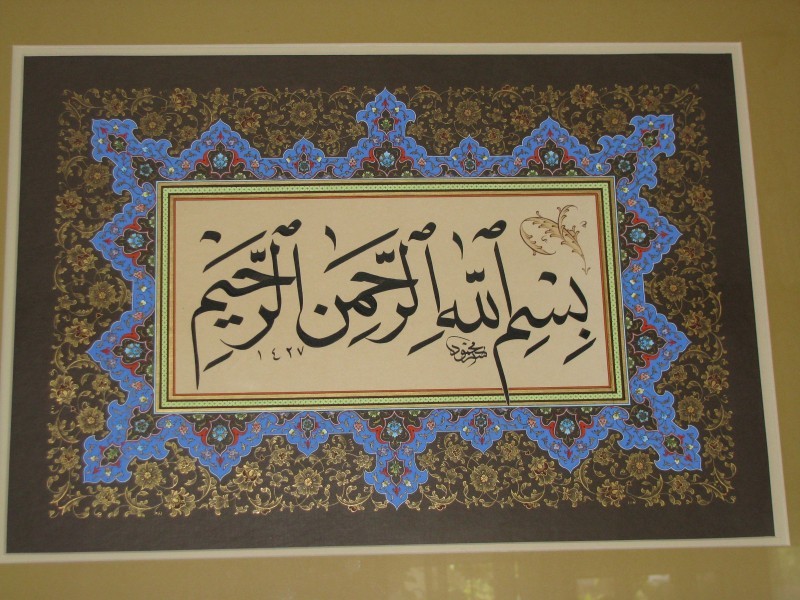 بِسْمِ اللّٰهِ الرَّحْمٰنِ الرَّحِيْمِ
١٤٢٧